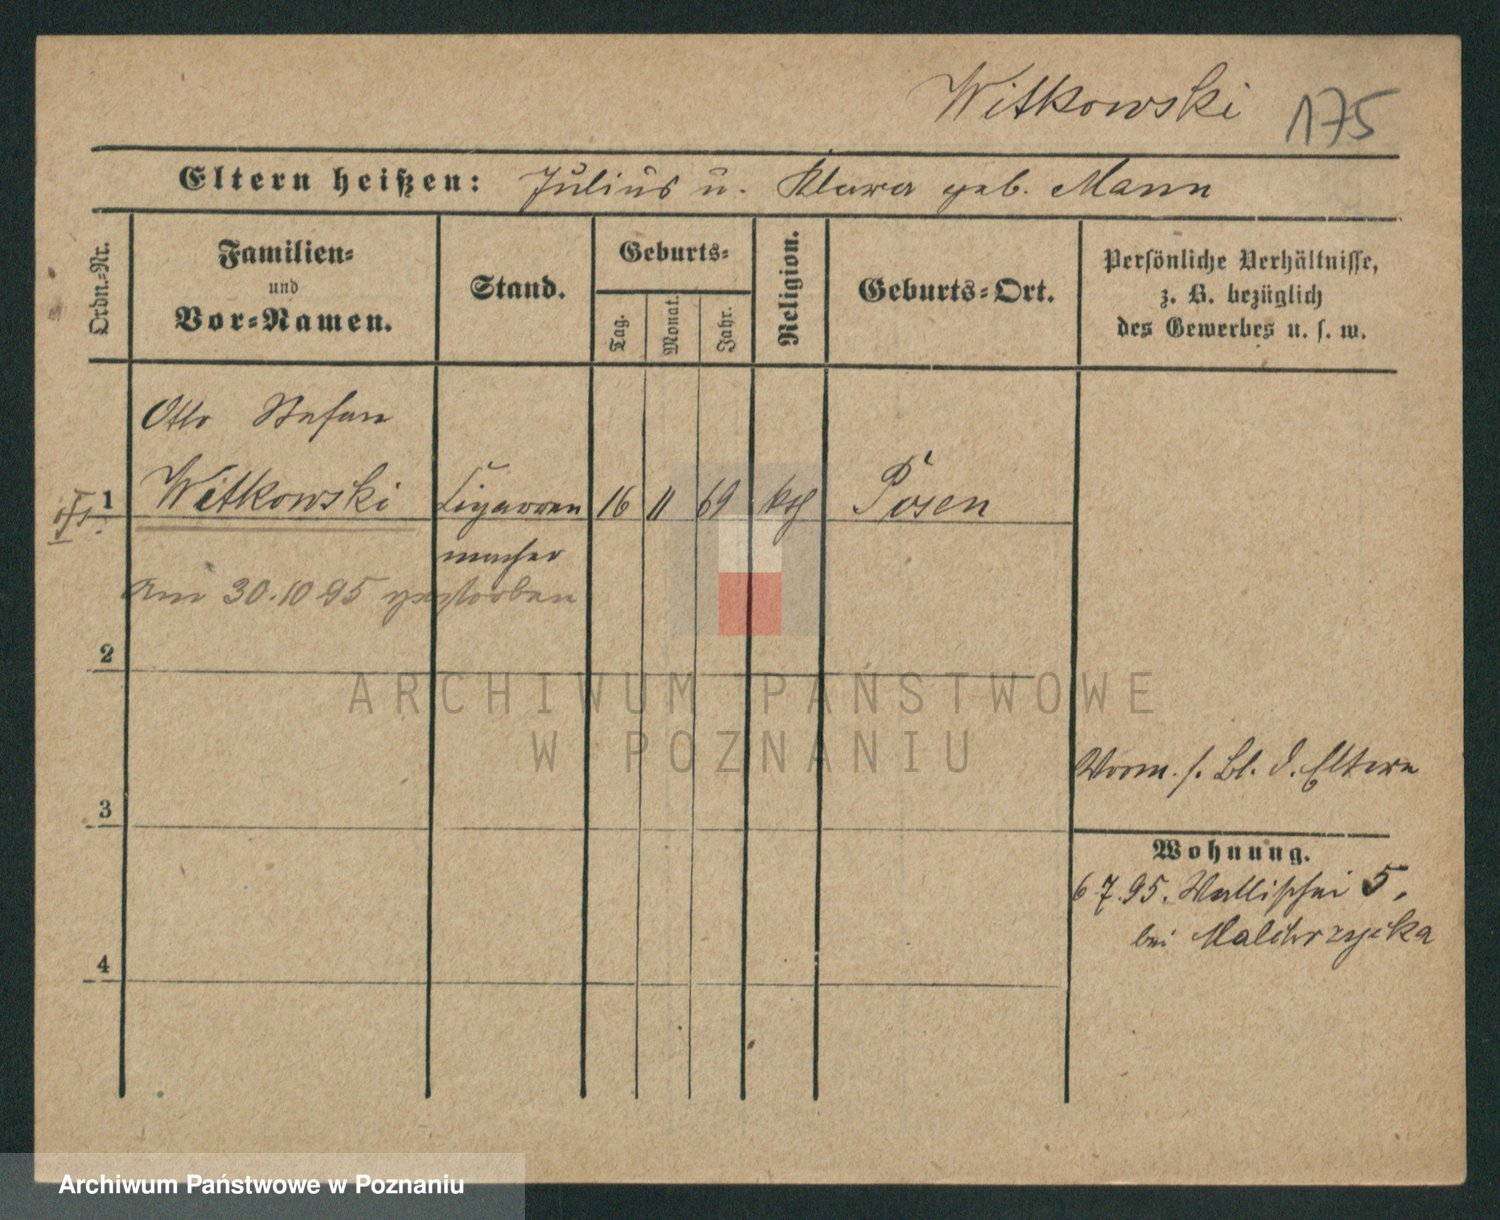 Witkowski 175
Eltern heißen: Julius u. Klara geb. Mann
Ordn.=Nr.
Familien=
und
Vor=Namen.
Stand.
Geburts=
Tag.
Monat.
Jahr.
Religion.
Geburts=Ort.
Persönliche Verhältnisse,
z. B. bezüglich
des Gewerbes u. s. w.
Otto Stefan
1 Witkowski Cigarren 16 11 69 kth Posen
macher
Am 30.10 95 gestorben
2
ARCHIWUM PAŃSTWOWE
W POZNANIU
Vorm. s. Bl. d. Eltern
3
Wohnung.
6 7.95. Wallischei 5,
bei
4
Archiwum Państwowe w Poznaniu